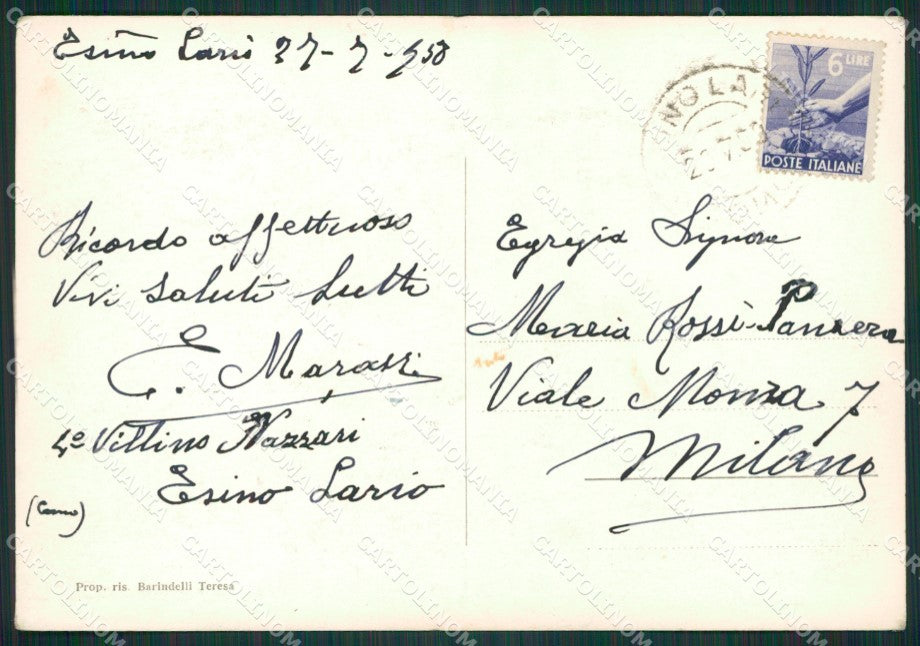 Esino Lario 27-7-958
6 LIRE
POSTE ITALIANE
Ricordo affettuoso
Vivi saluti tutti
E. Marassi
Vittino Nazzari
Esino Lario
(Como)
Prop. ris. Barindelli Teresa
Egregia Signora
Maria Rossi-Panzera
Viale Monza 7
Milano
CARTOLINOMANIA